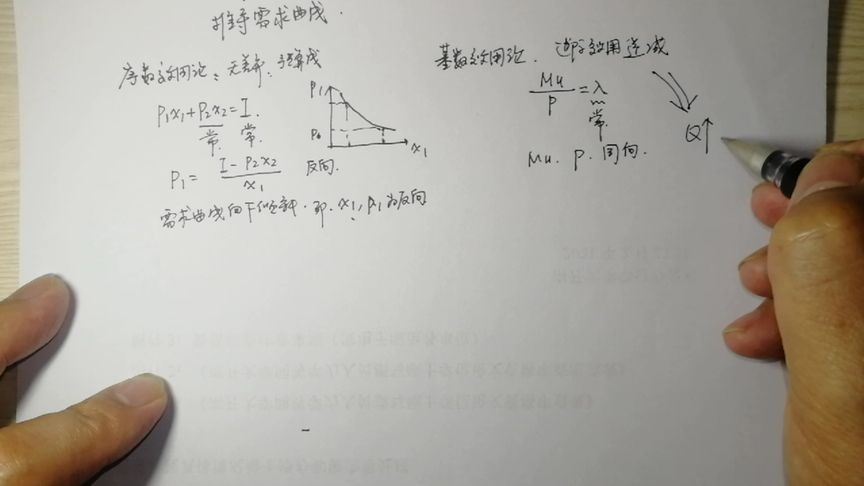 推导需求曲线.
序数效用论: 无差异、预算线
P₁x₁+P₂x₂=I.
常. 常.
P₁ = (I-P₂x₂)/x₁
反向.
P₁
P₀
x₁
需求曲线向下倾斜. 即. x₁, P₁为反向
基数效用论. 边际效用递减
Mu/P = λ
常.
Mu. P. 同向.
Q↑